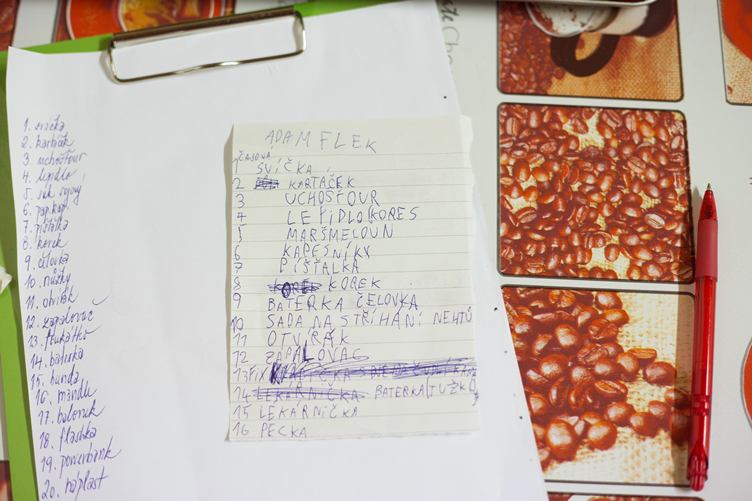 1. svíčka
2. kartáček
3. uchošťour
4. lepidlo
5.
6. pap. kap.
7. píšťalka
8. korek
9. čelovka
10. nůžky
11. otvírák
12. zapalovač
13.
14. baterka
15. bunda
16. mandle
17. balonek
18. flaška
19. powerbank
20. náplast
ADAM FLEK
ČAJOVÁ
1 SVÍČKA
2 KARTÁČEK
3 UCHOSŤOUR
4 LEPIDLO KORES
5 MARŠMELOUN
6 KAPESNÍKY
7 PÍŠŤALKA
8 KOREK
9 BATERKA ČELOVKA
10 SADA NA STŘÍHÁNÍ NEHTŮ
11 OTVÍRÁK
12 ZAPALOVAČ
13 FIX
14 LEKÁRNIČKA BATERKA (TUŽKO)
15 LEKÁRNIČKA
16 PECKA